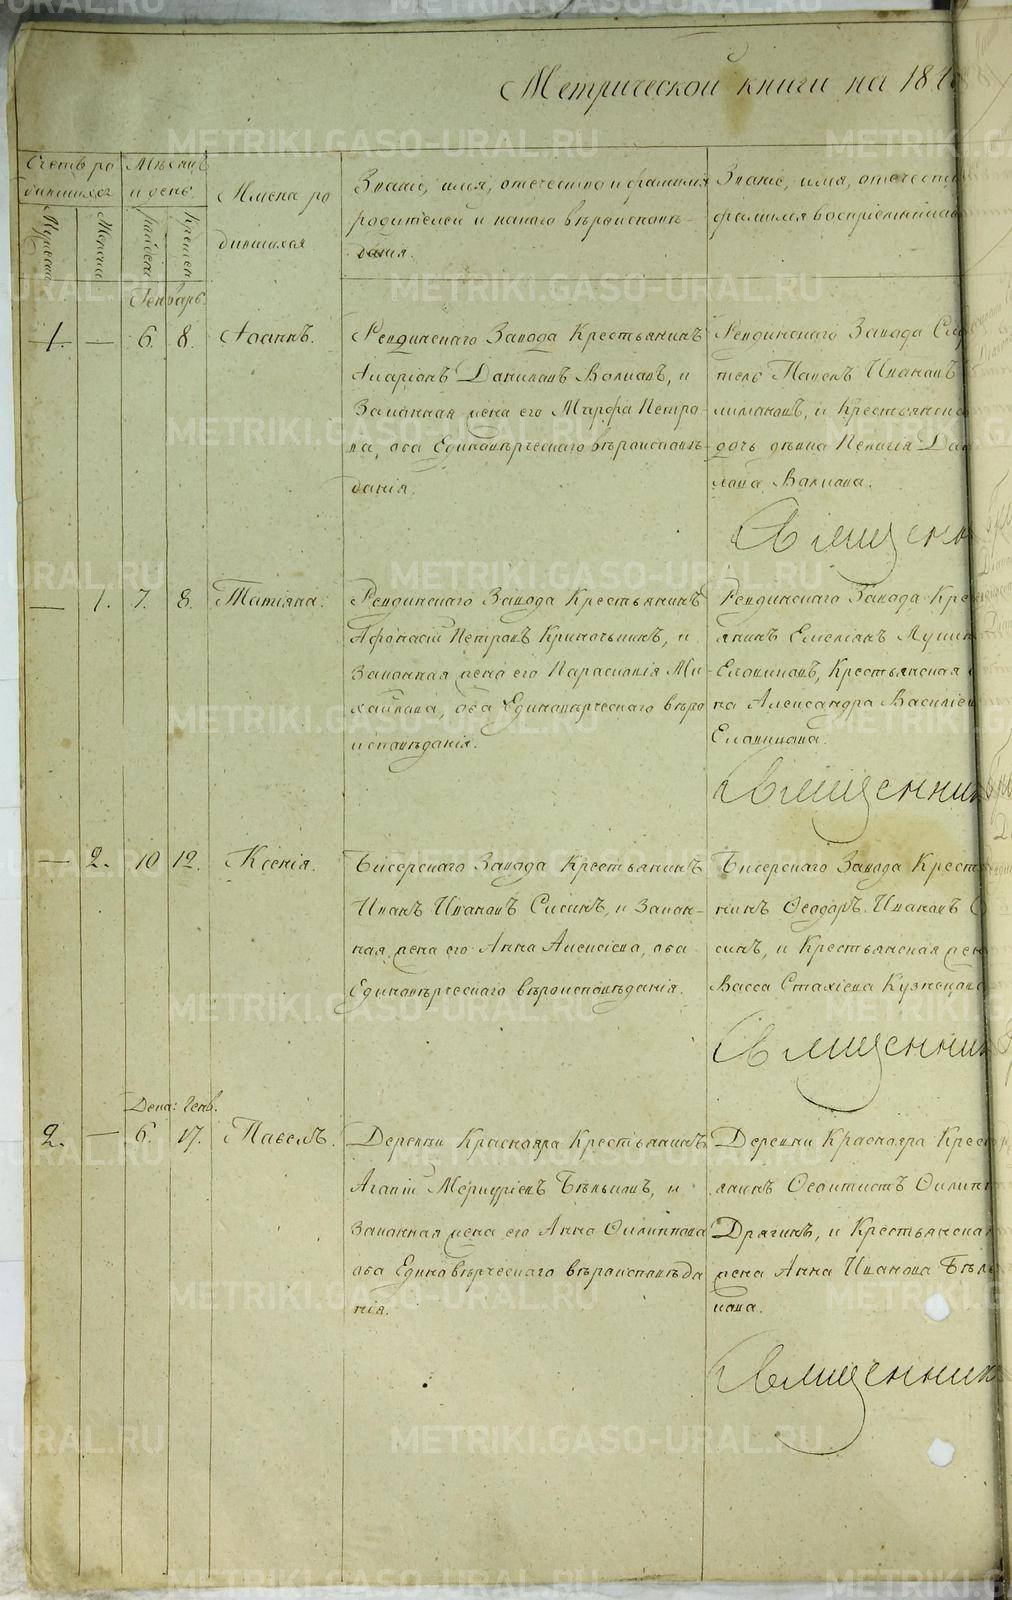 Метрической книги на 18
Счетъ ро
дившихся
Мѣсяцъ
и день
Мужеска
Женска
рожденія
Крещен
Имена ро
дившихся
Званіе, имя, отечество и фамилия
родителей и какого вѣроисповѣ-
данія.
Званіе, имя, отечест
фамилия воспріемников
Генварь
1. — 6. 8. Іоаннъ.
Ревдинскаго Завода Крестьянинъ
Иларіонъ Даниловъ Валиовъ, и
Законная жена его Марфа Петро-
ва, оба Единовѣрческаго вѣроисповѣ-
данія.
Ревдинскаго Завода Слу
тель Павелъ Ивановъ
и Крестьянская
дочь дѣвица Пелагія Дан
лова Валиова.
Священник
— 1. 7. 8. Татіяна.
Ревдинскаго Завода Крестьянинъ
Афонасій Петровъ Кривочькинъ, и
Законная жена его Парасковія Ми-
хайлова, оба Единовѣрческаго вѣро
исповѣданія.
Ревдинскаго Завода Крес
янинъ Емеліянъ Лукин
Еловицовъ, Крестьянская
на Александра Василіев
Еловицова.
Священник
— 2. 10 12. Ксенія.
Бисерскаго Завода Крестьянинъ
Иванъ Ивановъ Сисинъ, и Закон-
ная жена его Анна Алексіева, оба
Единовѣрческаго вѣроисповѣданія.
Бисерскаго Завода Крестья
нинъ Ѳеодоръ Ивановъ С
синъ, и Крестьянская жен
Васса Стахіева Кузнецова
Священник
Дека: Генв.
2. — 6. 17. Павелъ.
Деревни Краснояра Крестьянинъ
Агапій Меркуріевъ Бѣльковъ, и
Законная жена его Анна Филиппова
оба Единовѣрческаго вѣроисповѣда
нія.
Деревни Краснояра Крест
янинъ Ѳеоктистъ Филип
Дрягинъ, и Крестьянская
жена Анна Иванова Бѣль
кова.
Священник
METRIKI.GASO-URAL.RU